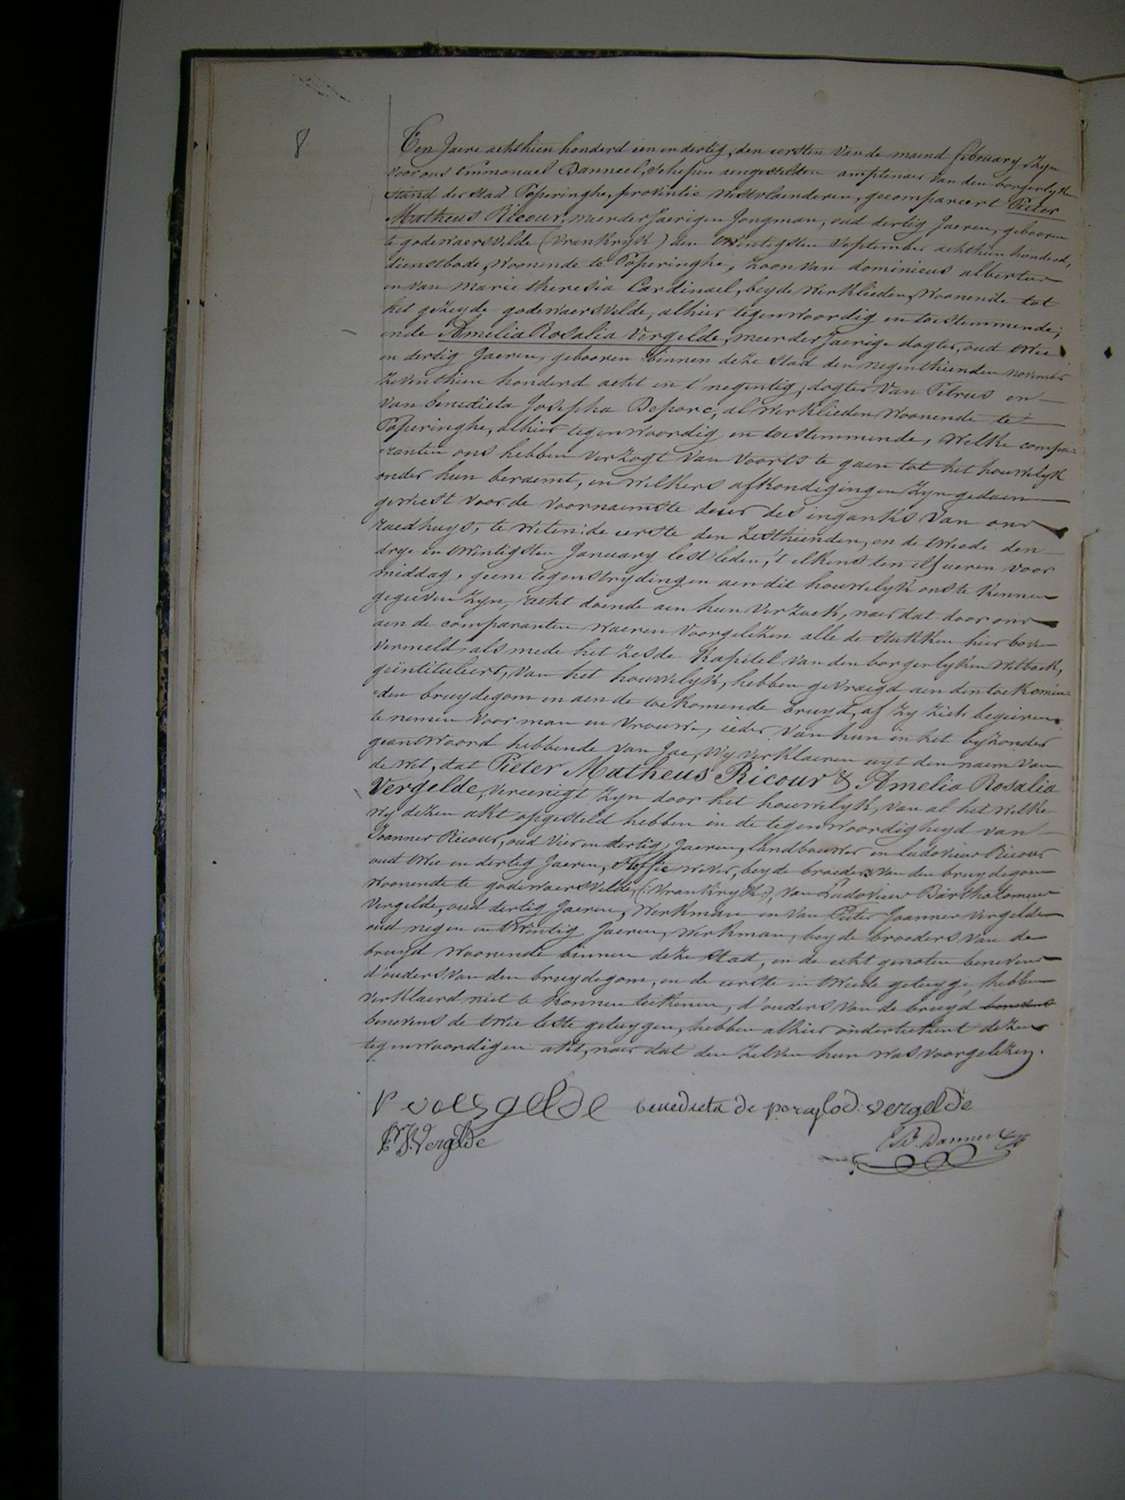 8
Ten Jaere achthien honderd een en dertig, den eersten van de maend february, Zyn
voor ons Emmanuel Banneel, schepen aengestelden amptenaer van den borgerlyken
stand der stad Poperinghe, provintie Westvlaenderen, gecompareert Pieter
Matheus Ricour, meerderjaerigen Jongman, oud dertig Jaeren, gebooren
te godewaersvelde (Vrankryk) den twintigsten September achthien honderd,
dienstbode, woonende te Poperinghe, zoon van dominicus albertus
en van Marie theresia Cardinael, beyde werklieden, woonende tot
het gezeyde godewaersvelde, alhier tegenwoordig en toestemmende;
ende Amelia Rosalia Vergelde, meerderjaerige dogter, oud twee
en dertig Jaeren, gebooren binnen deze stad den negenthienden november
zeventhien honderd acht en t'negentig, dogter van Petrus en
van benedicta Josepha Deporc, al werklieden woonende te
Poperinghe, alhier tegenwoordig en toestemmende, welke compa-
ranten ons hebben verzogt van voorts te gaen tot het houwelyk
onder hun beraemt, en welkers afkondigingen Zyn gedaen
geweest voor de voornaemste deur des ingangs van ons
raedhuys, te weten: de eerste den zesthienden, en de tweede den
drye en twintigsten January lest leden, 't elkens ten elf ueren voor
middag, geene tegenstrydingen aen dit houwelyk ons te kennen
gegeven Zyn, acht doende aen hun verzoek, naer dat door ons
aen de comparanten waeren voorgelezen alle de stukken hier boven
vermeld als mede het zesde kapitel van den borgerlyken wetboek,
geïntituleert, van het houwelyk, hebben gevraegd aen den toekomen-
den bruydegom en aen de toekomende bruyd, of Zy zich begeiren
te nemen voor man en vrouwe, ieder van hun in het byzonder
geantwoord hebbende van Jae, Wy verklaeren uyt den naem van
de wet, dat Pieter Matheus Ricour & Amelia Rosalia
Vergelde, vereenigt Zyn door het houwelyk, van al het welke
wy dezen akt opgesteld hebben in de tegenwoordigheyd van
Joannes Ricour, oud vier en dertig Jaeren, landbouwer en ludovicus Ricour
oud twee en dertig Jaeren, stoffe wever, beyde broeders van den bruydegom
woonende te godewaersvelde, (Vrankryk), van Ludovicus Bartholomeus
Vergelde, oud dertig Jaeren, werkman en van Pieter Joannes Vergelde
oud negen en twintig Jaeren, werkman, beyde broeders van de
bruyd woonende binnen deze stad, en de echt genoten benevens
d'ouders van den bruydegom, en de eerste en tweede getuyge, hebben
verklaerd niet te konnen teekenen, d'ouders van de bruyd benevens
benevens de twee leste getuygen, hebben alhier onderteekent dezen
tegenwoordigen akt, naer dat den zelven hun was voorgelezen.
P vergelde benedicta de porc lod: vergelde
P.J. Vergelde E. Banneel